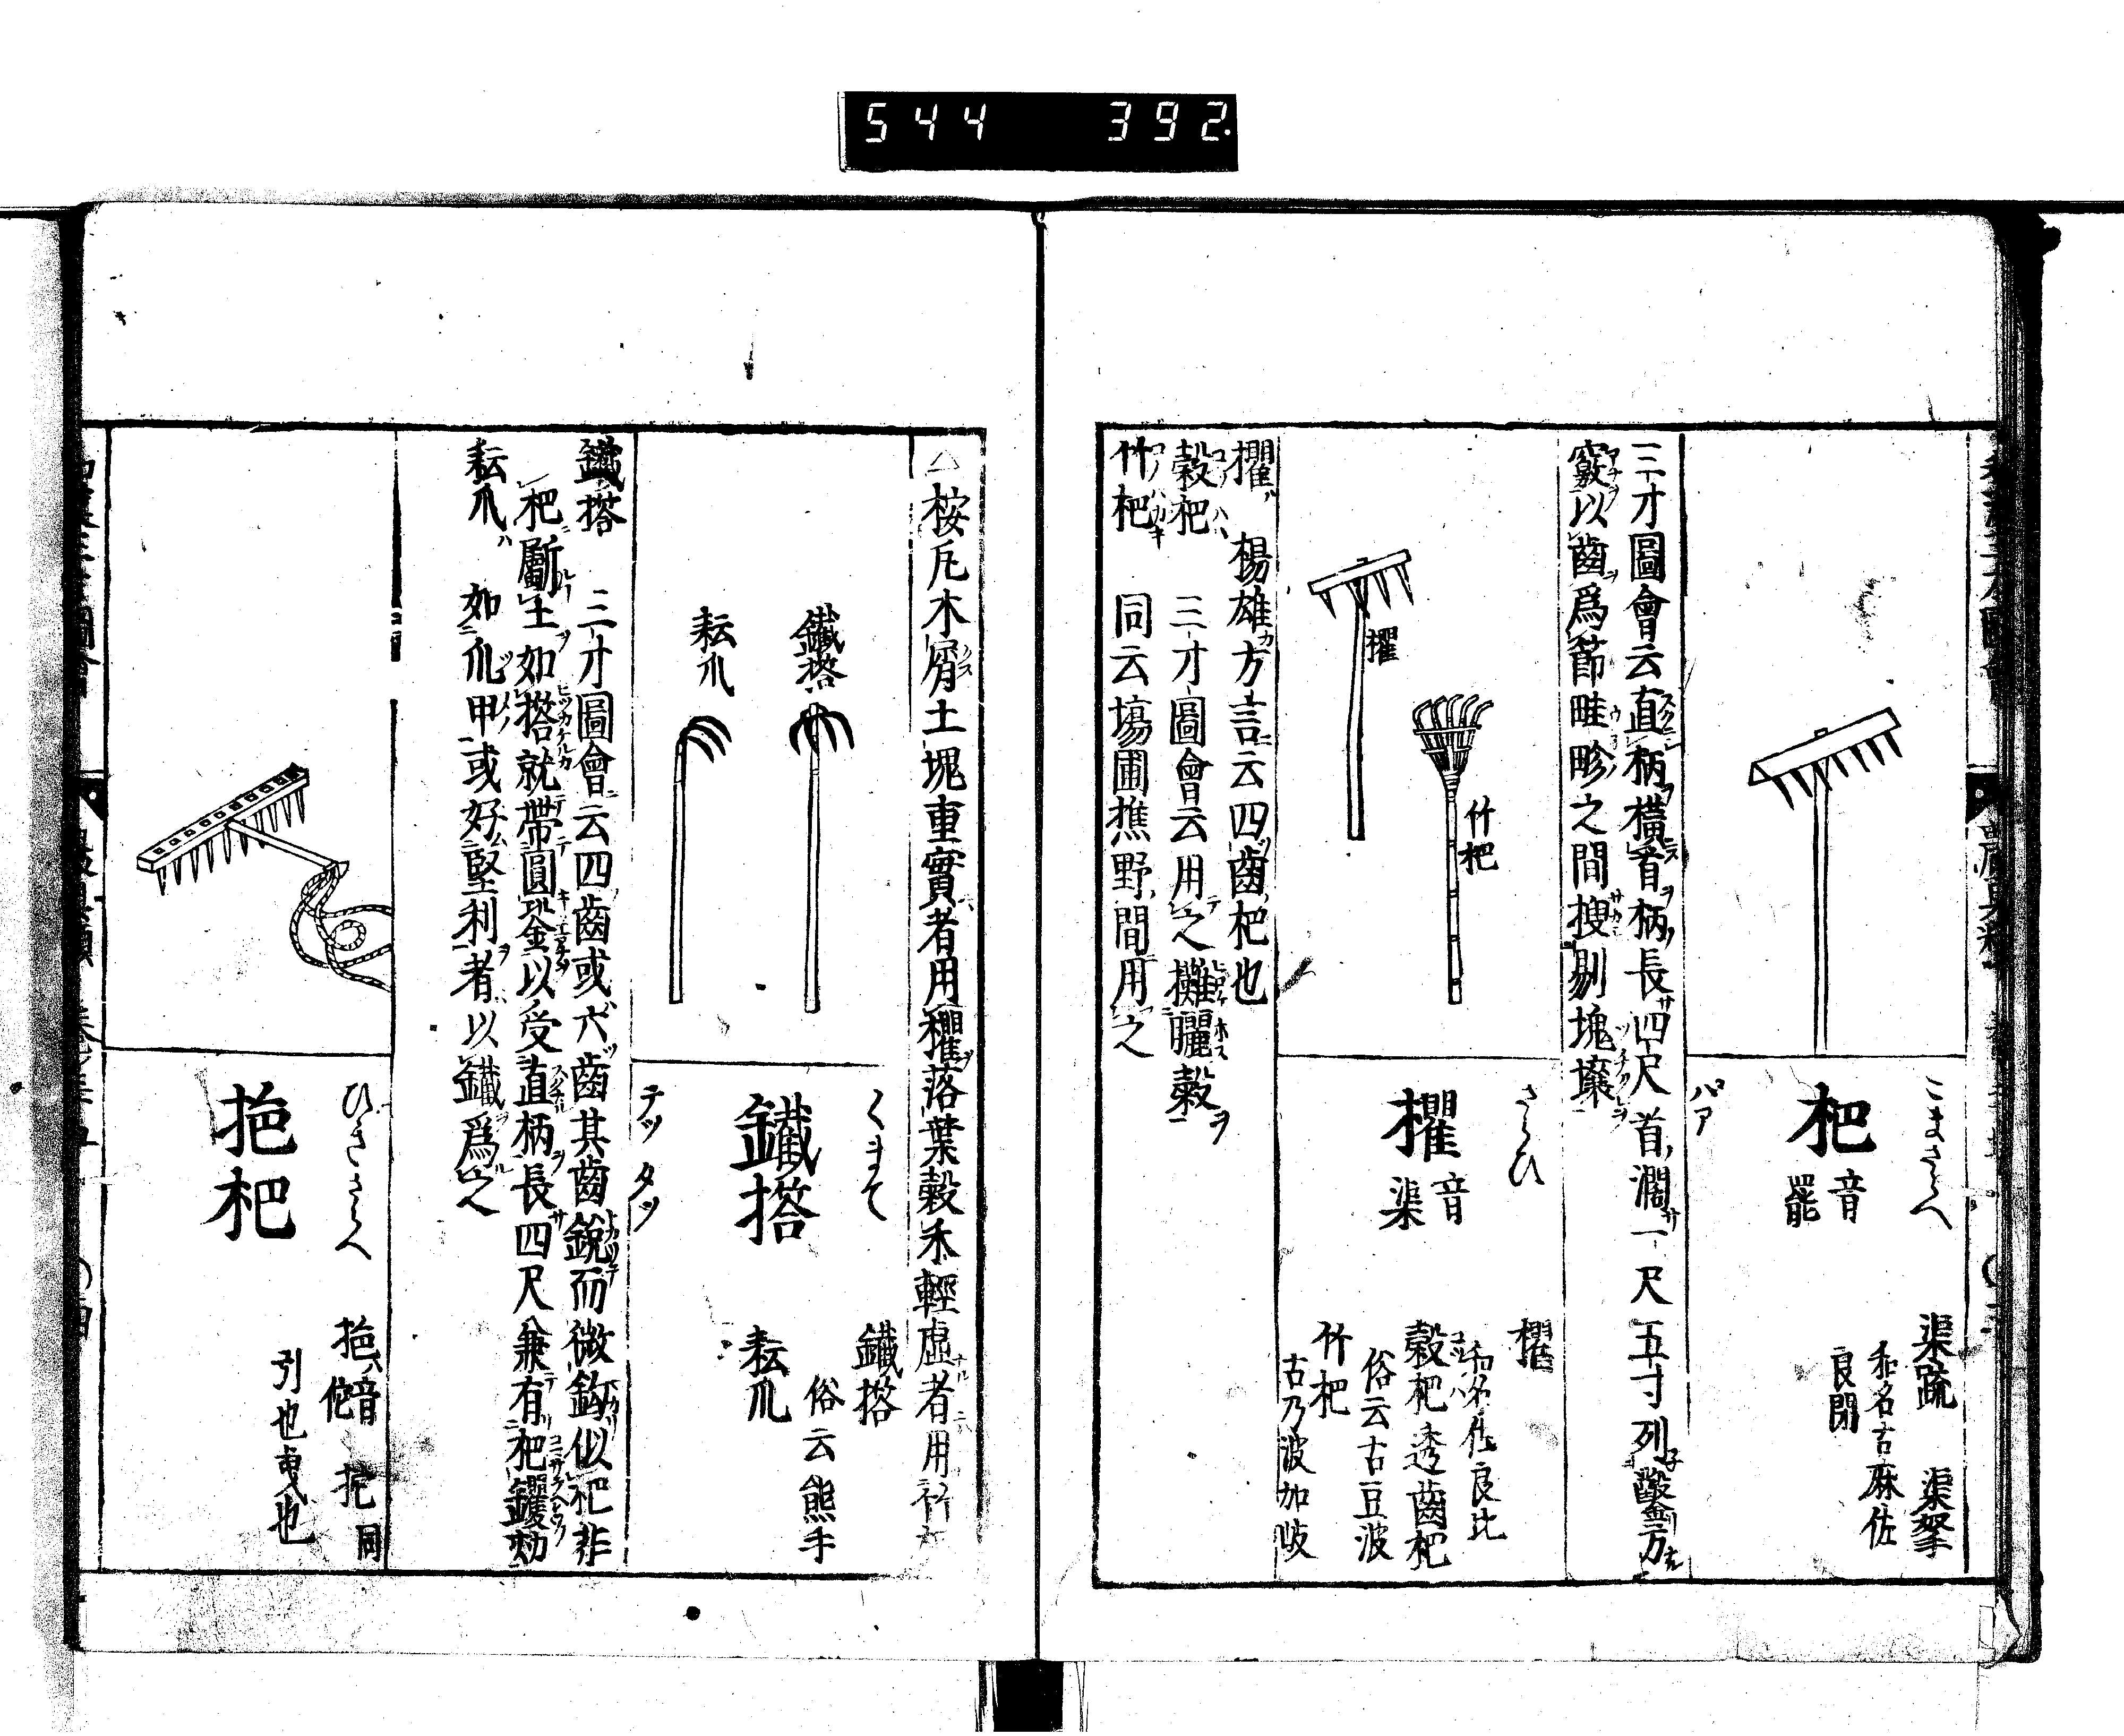 544 392
こまさらへ
杷
音罷
渠疏 渠挐
和名古麻佐
良閉
パア
三才圖會云直柄橫首柄長四尺首濶一尺五寸列鑿方
竅以齒爲節畦畛之間搜剔塊壤
欋
竹杷
さらひ
欋
音渠
欋
和名佐良比
穀杷 透齒杷
俗云古豆波
竹杷
古乃波加岐
欋 楊雄方言云四齒杷也
穀杷 三才圖會云用之攤曬穀
竹杷 同云塲圃樵野間用之
△桉凡木屑土塊重實者用欋落葉穀禾輕虛者用竹杷
鐵搭
耘爪
くまて
鐵搭
テツ タツ
鐵搭
俗云熊手
耘爪
鐵搭 三才圖會云四齒或六齒其齒銳而微鈎似杷非
杷斸土如搭就帶圓銎以受直柄長四尺兼有杷钁効
耘爪 如爪甲或好堅利者以鐵爲之
ひきさらへ
𢫬杷
𢫬音佗 拕同
引也曳也